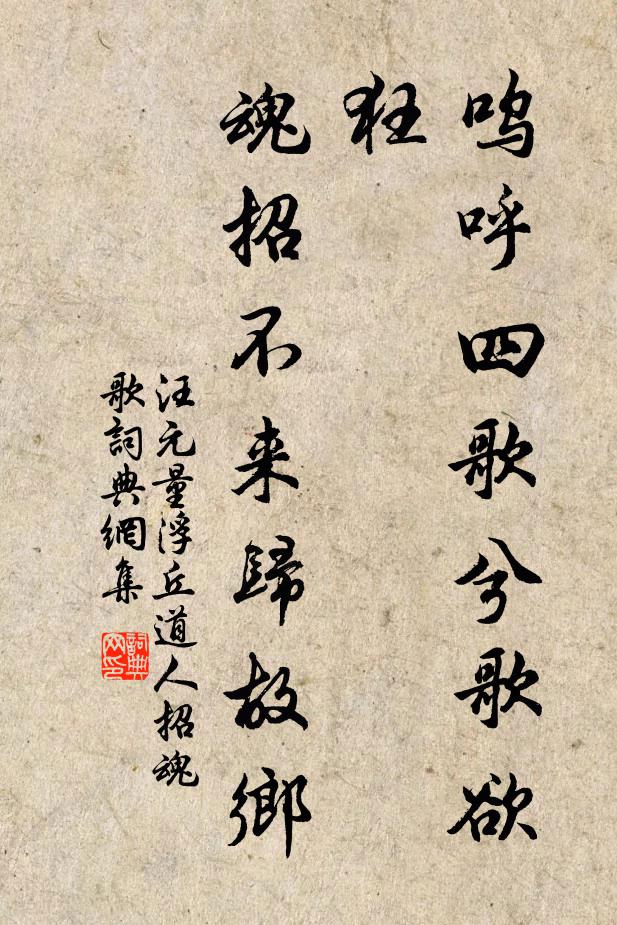 嗚呼四歌兮歌欲
狂
魂招不来歸故鄉
汪元量浮丘道人招魂
歌詞典網集
詞典
网印